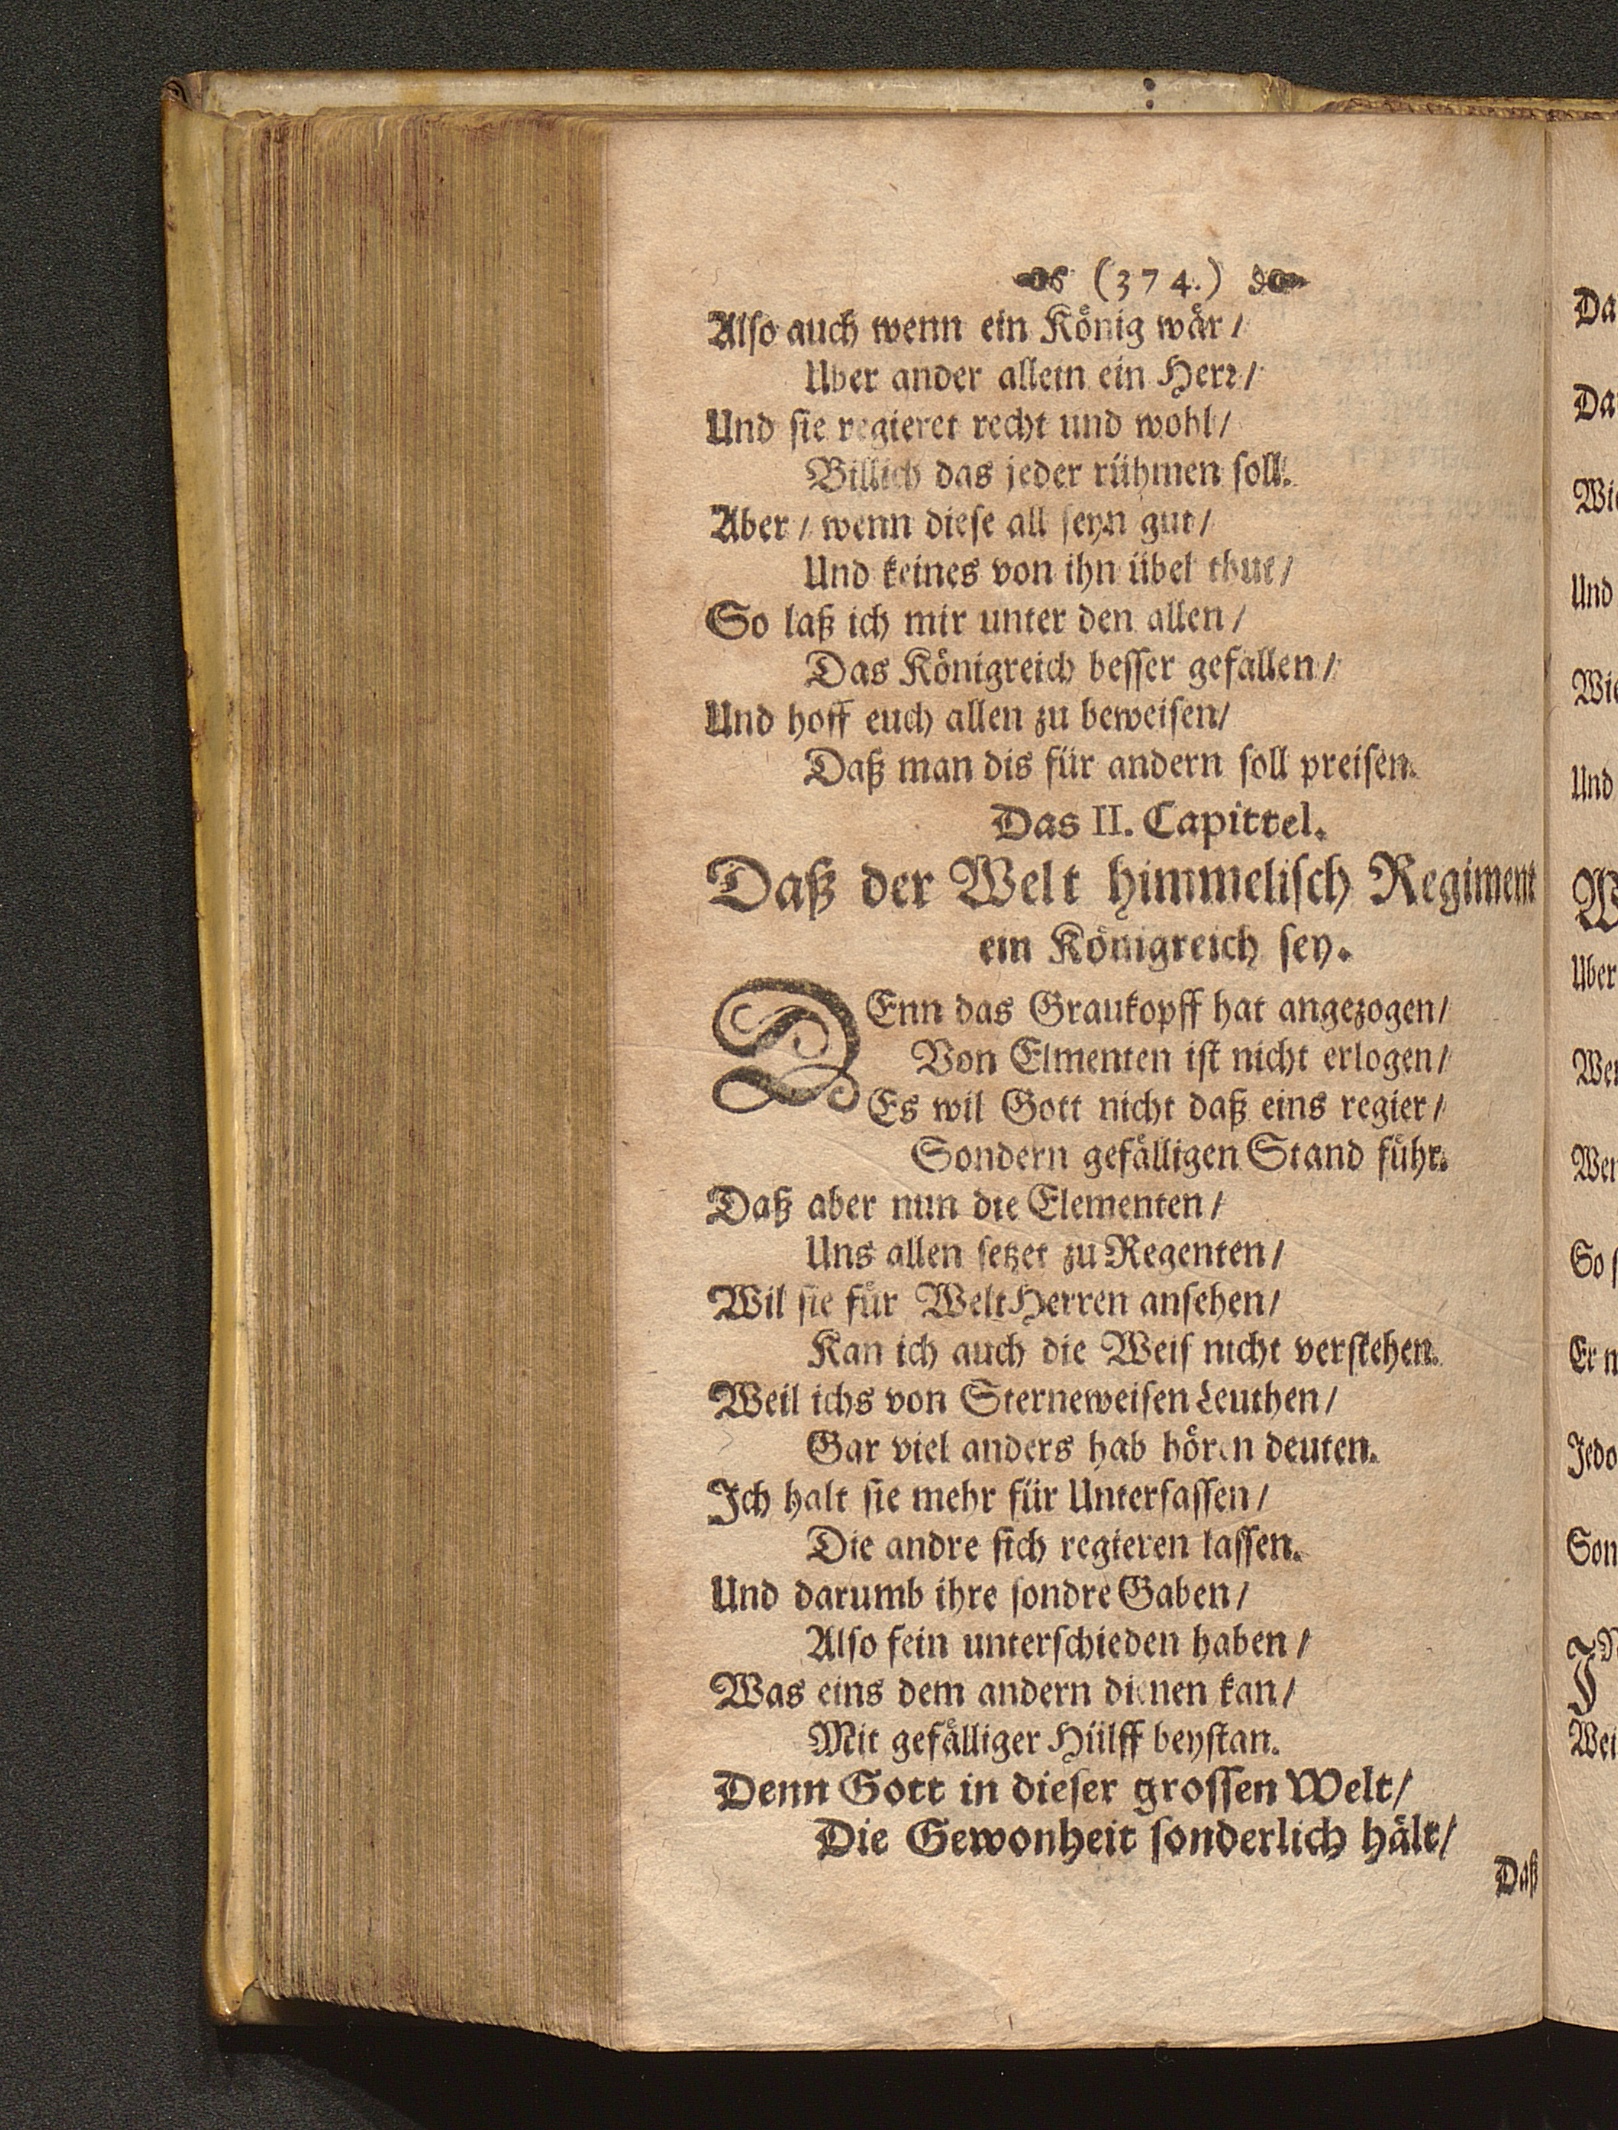 (374.)
Also auch wenn ein König wär/
Uber ander allein ein Herr/
Und sie regieret recht und wohl/
Billich das jeder rühmen soll.
Aber/ wenn diese all seyn gut/
Und keines von ihn übel thut/
So laß ich mir unter den allen/
Das Königreich besser gefallen/
Und hoff euch allen zu beweisen/
Daß man dis für andern soll preisen.
Das II. Capittel.
Daß der Welt himmelisch Regiment
ein Königreich sey.
DEnn das Graukopff hat angezogen/
Von Elmenten ist nicht erlogen/
Es wil Gott nicht daß eins regier/
Sondern gefälligen Stand führ.
Daß aber nun die Elementen/
Uns allen setzet zu Regenten/
Wil sie für WeltHerren ansehen/
Kan ich auch die Weis nicht verstehen.
Weil ichs von Sterneweisen Leuthen/
Gar viel anders hab hören deuten.
Ich halt sie mehr für Untersassen/
Die andre sich regieren lassen.
Und darumb ihre sondre Gaben/
Also fein unterschieden haben/
Was eins dem andern dienen kan/
Mit gefälliger Hülff beystan.
Denn Gott in dieser grossen Welt/
Die Gewonheit sonderlich hält/
Daß